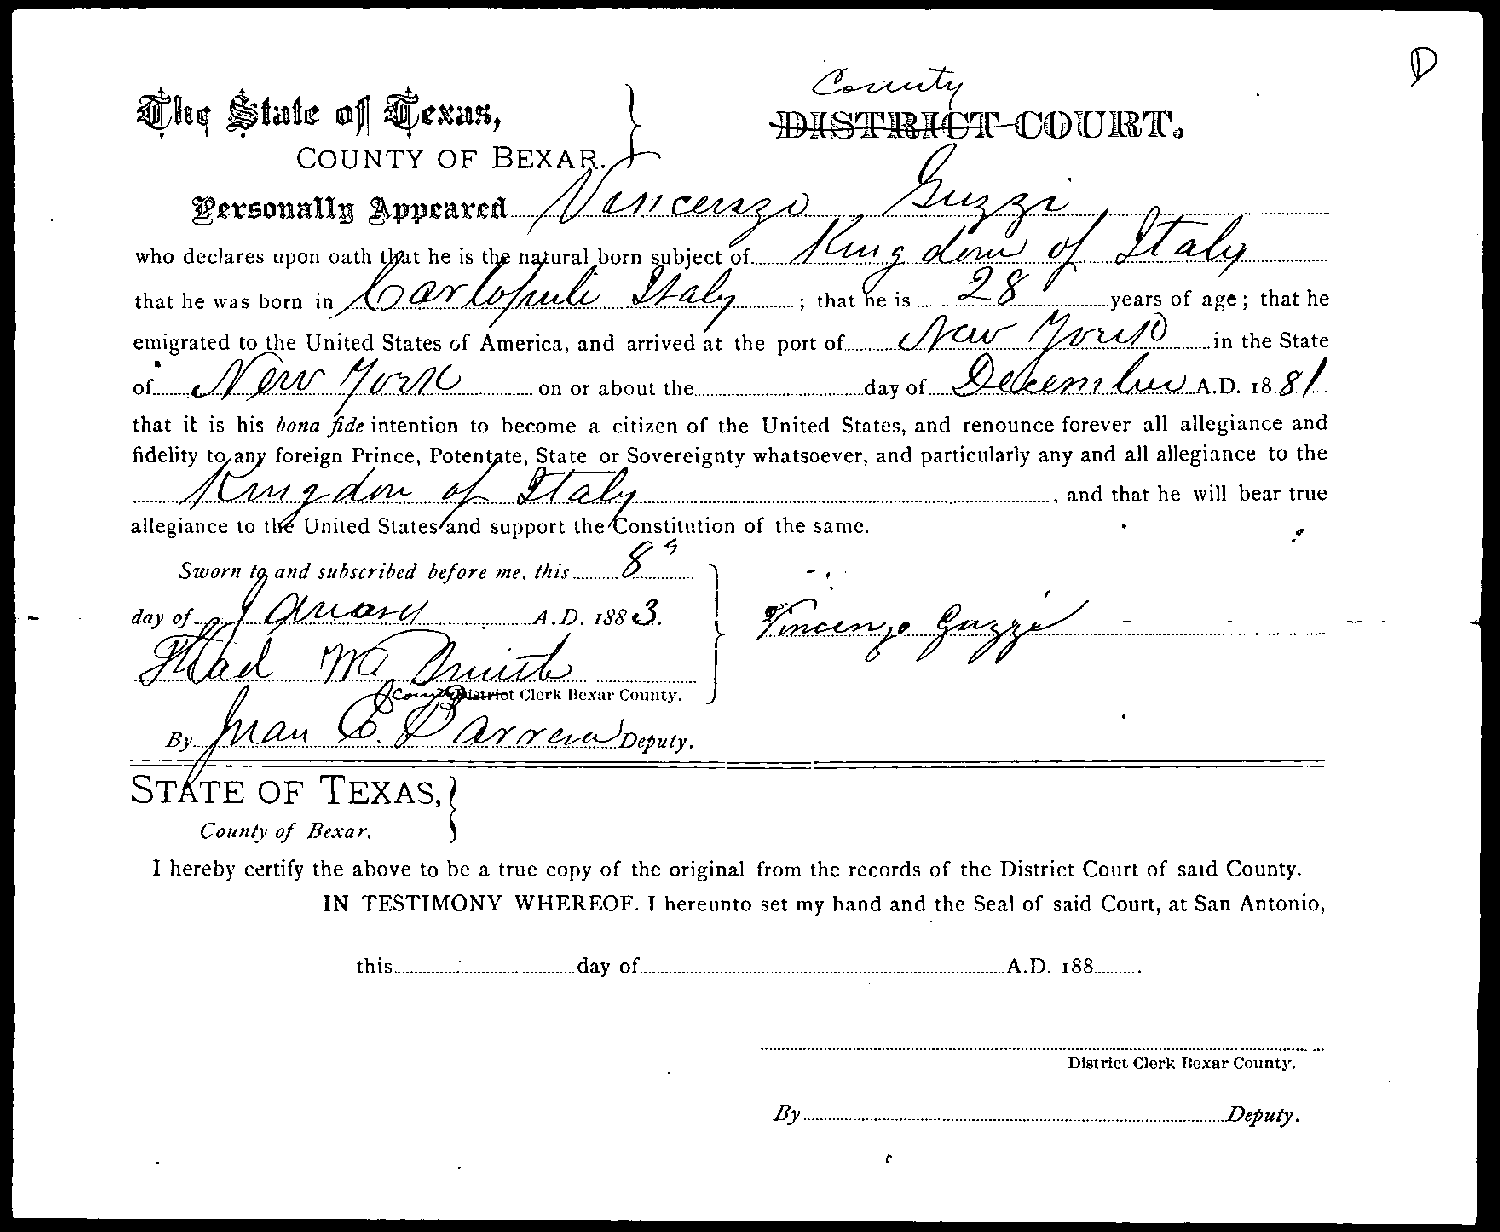 D
County
The State of Texas, } DISTRICT COURT.
COUNTY OF BEXAR.
Personally Appeared Vincenzo Guzzi
who declares upon oath that he is the natural born subject of Kingdom of Italy
that he was born in Carlopule Italy ; that he is 28 years of age; that he
emigrated to the United States of America, and arrived at the port of New York in the State
of New York on or about the day of December A.D. 1881
that it is his bona fide intention to become a citizen of the United States, and renounce forever all allegiance and
fidelity to any foreign Prince, Potentate, State or Sovereignty whatsoever, and particularly any and all allegiance to the
Kingdom of Italy, and that he will bear true
allegiance to the United States and support the Constitution of the same.
Sworn to and subscribed before me, this 8"
day of January A.D. 1883.
Vincenzo Guzzi
Thad W Smith
County District Clerk Bexar County.
By Juan E. Barrera Deputy.
STATE OF TEXAS, }
County of Bexar.
I hereby certify the above to be a true copy of the original from the records of the District Court of said County.
IN TESTIMONY WHEREOF. I hereunto set my hand and the Seal of said Court, at San Antonio,
this day of A.D. 188 .
District Clerk Bexar County.
By Deputy.